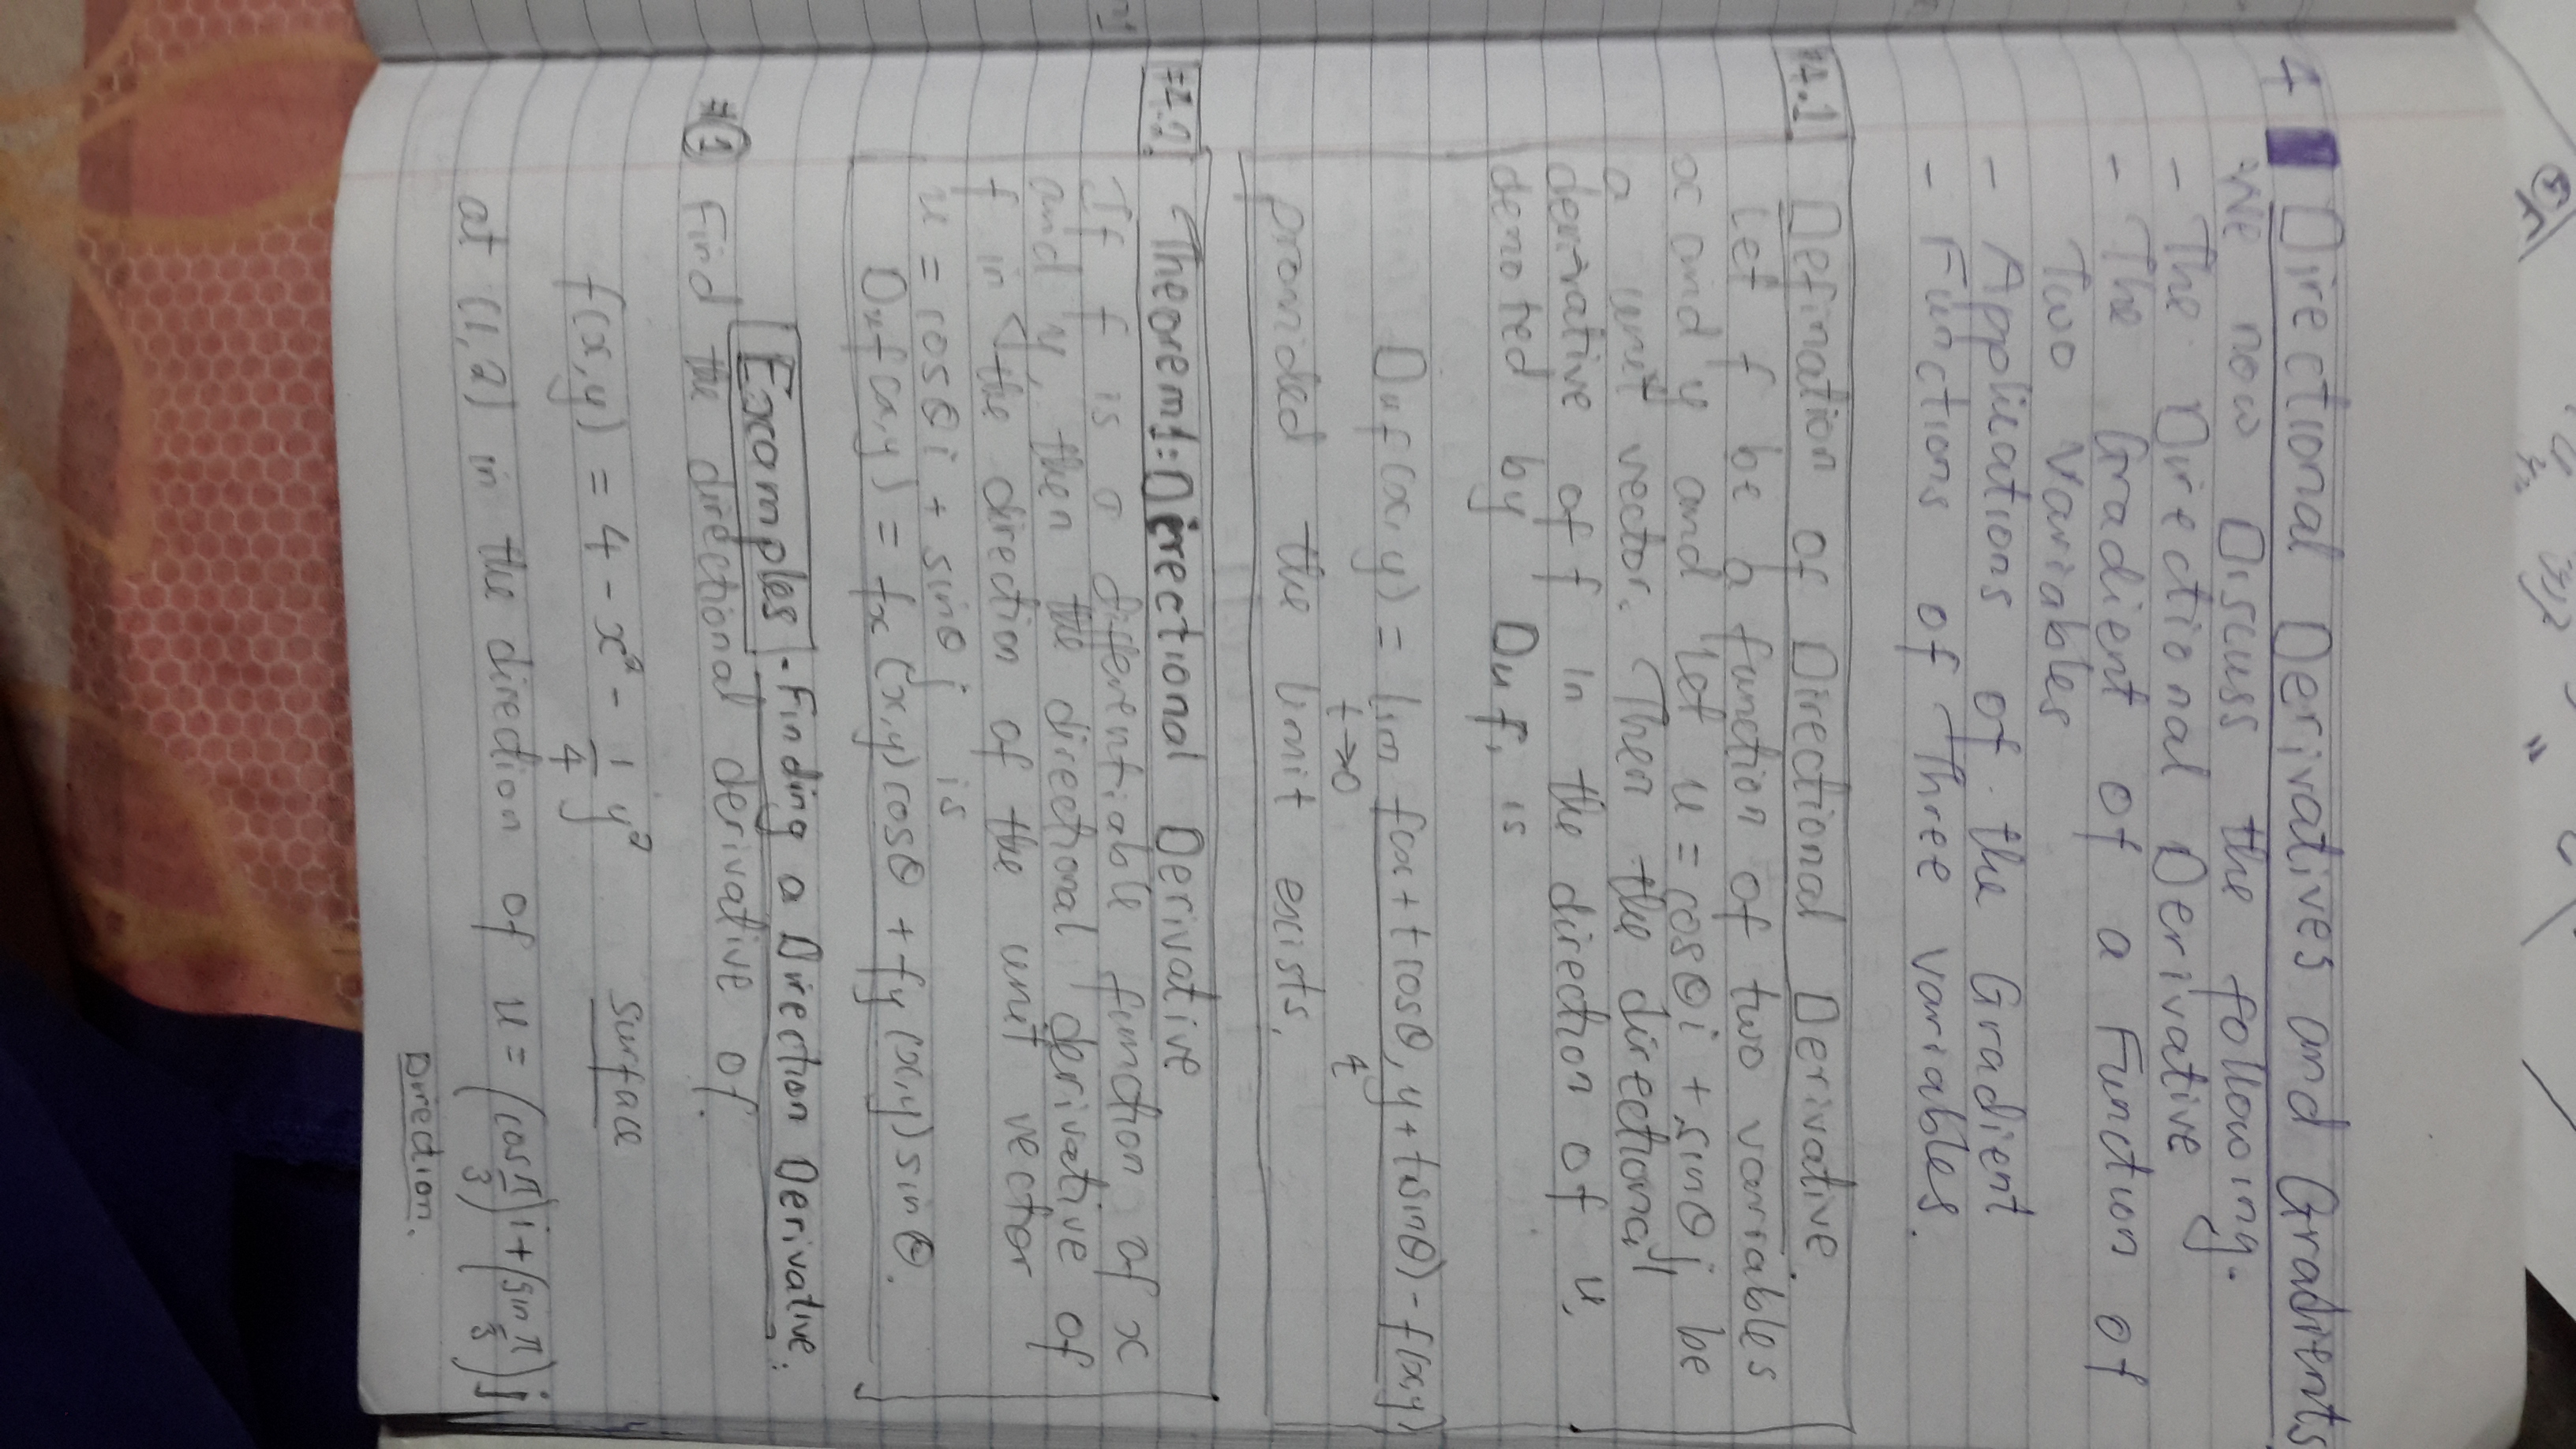 4 Directional Derivatives and Gradients
We now Discuss the following.
- The Directional Derivative
- The Gradient of a Function of
Two Variables
- Applications of the Gradient
- Functions of Three variables.
4.1 Defination of Directional Derivative.
Let f be a function of two variables
x and y and let u = cosθi + sinθj be
a unit vector. Then the directional
derivative of f in the direction of u,
denoted by Duf, is
Duf(x,y) = lim f(x+tcosθ, y+tsinθ) - f(x,y)
t→0 t
provided the limit exists.
4.2 Theorem 1: Directional Derivative
If f is a differentiable function of x
and y, then the directional derivative of
f in the direction of the unit vector
u = cosθi + sinθj is
Duf(x,y) = fx(x,y)cosθ + fy(x,y)sinθ.
Examples - Finding a Direction Derivative.
#1 Find the directional derivative of
f(x,y) = 4 - x² - 1/4 y² surface
at (1,2) in the direction of u = (cos π/3)i + (sin π/3)j
Direction.